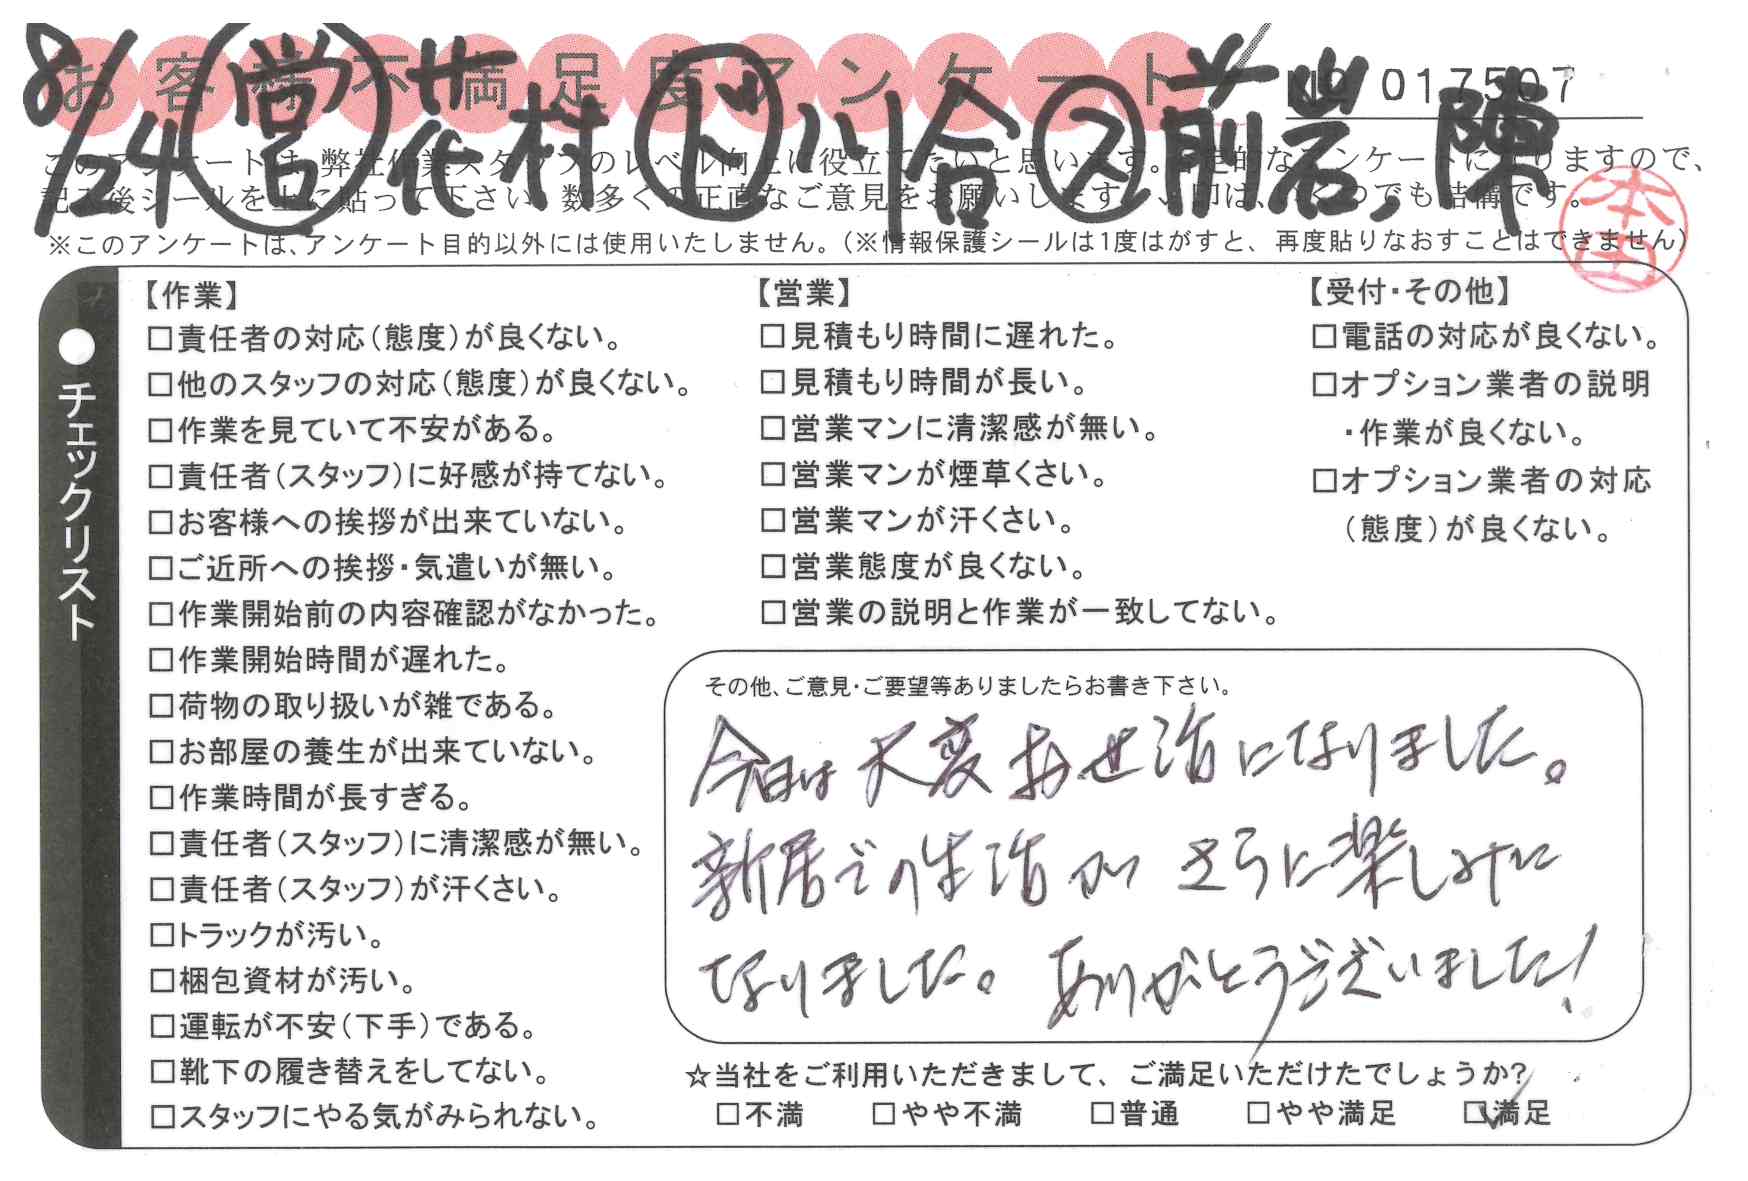 お客様不満足度アンケート
No 017507
8/24 営 茂木村 ド 小川合 ス 前岩, 陳
このアンケートは、弊社作業スタッフのレベル向上に役立てたいと思います。否定的なアンケートになりますので、
記入後シールを上に貼って下さい。数多くの正直なご意見をお願いします。レ印は、いくつでも結構です。
※このアンケートは、アンケート目的以外には使用いたしません。(※情報保護シールは1度はがすと、再度貼りなおすことはできません)
●チェックリスト
【作業】
□責任者の対応(態度)が良くない。
□他のスタッフの対応(態度)が良くない。
□作業を見ていて不安がある。
□責任者(スタッフ)に好感が持てない。
□お客様への挨拶が出来ていない。
□ご近所への挨拶・気遣いが無い。
□作業開始前の内容確認がなかった。
□作業開始時間が遅れた。
□荷物の取り扱いが雑である。
□お部屋の養生が出来ていない。
□作業時間が長すぎる。
□責任者(スタッフ)に清潔感が無い。
□責任者(スタッフ)が汗くさい。
□トラックが汚い。
□梱包資材が汚い。
□運転が不安(下手)である。
□靴下の履き替えをしてない。
□スタッフにやる気がみられない。
【営業】
□見積もり時間に遅れた。
□見積もり時間が長い。
□営業マンに清潔感が無い。
□営業マンが煙草くさい。
□営業マンが汗くさい。
□営業態度が良くない。
□営業の説明と作業が一致してない。
【受付・その他】
□電話の対応が良くない。
□オプション業者の説明
・作業が良くない。
□オプション業者の対応
(態度)が良くない。
その他、ご意見・ご要望等ありましたらお書き下さい。
今日は大変お世話になりました。
新居での生活がさらに楽しみに
なりました。ありがとうございました!
☆当社をご利用いただきまして、ご満足いただけたでしょうか?
□不満 □やや不満 □普通 □やや満足 ☑満足